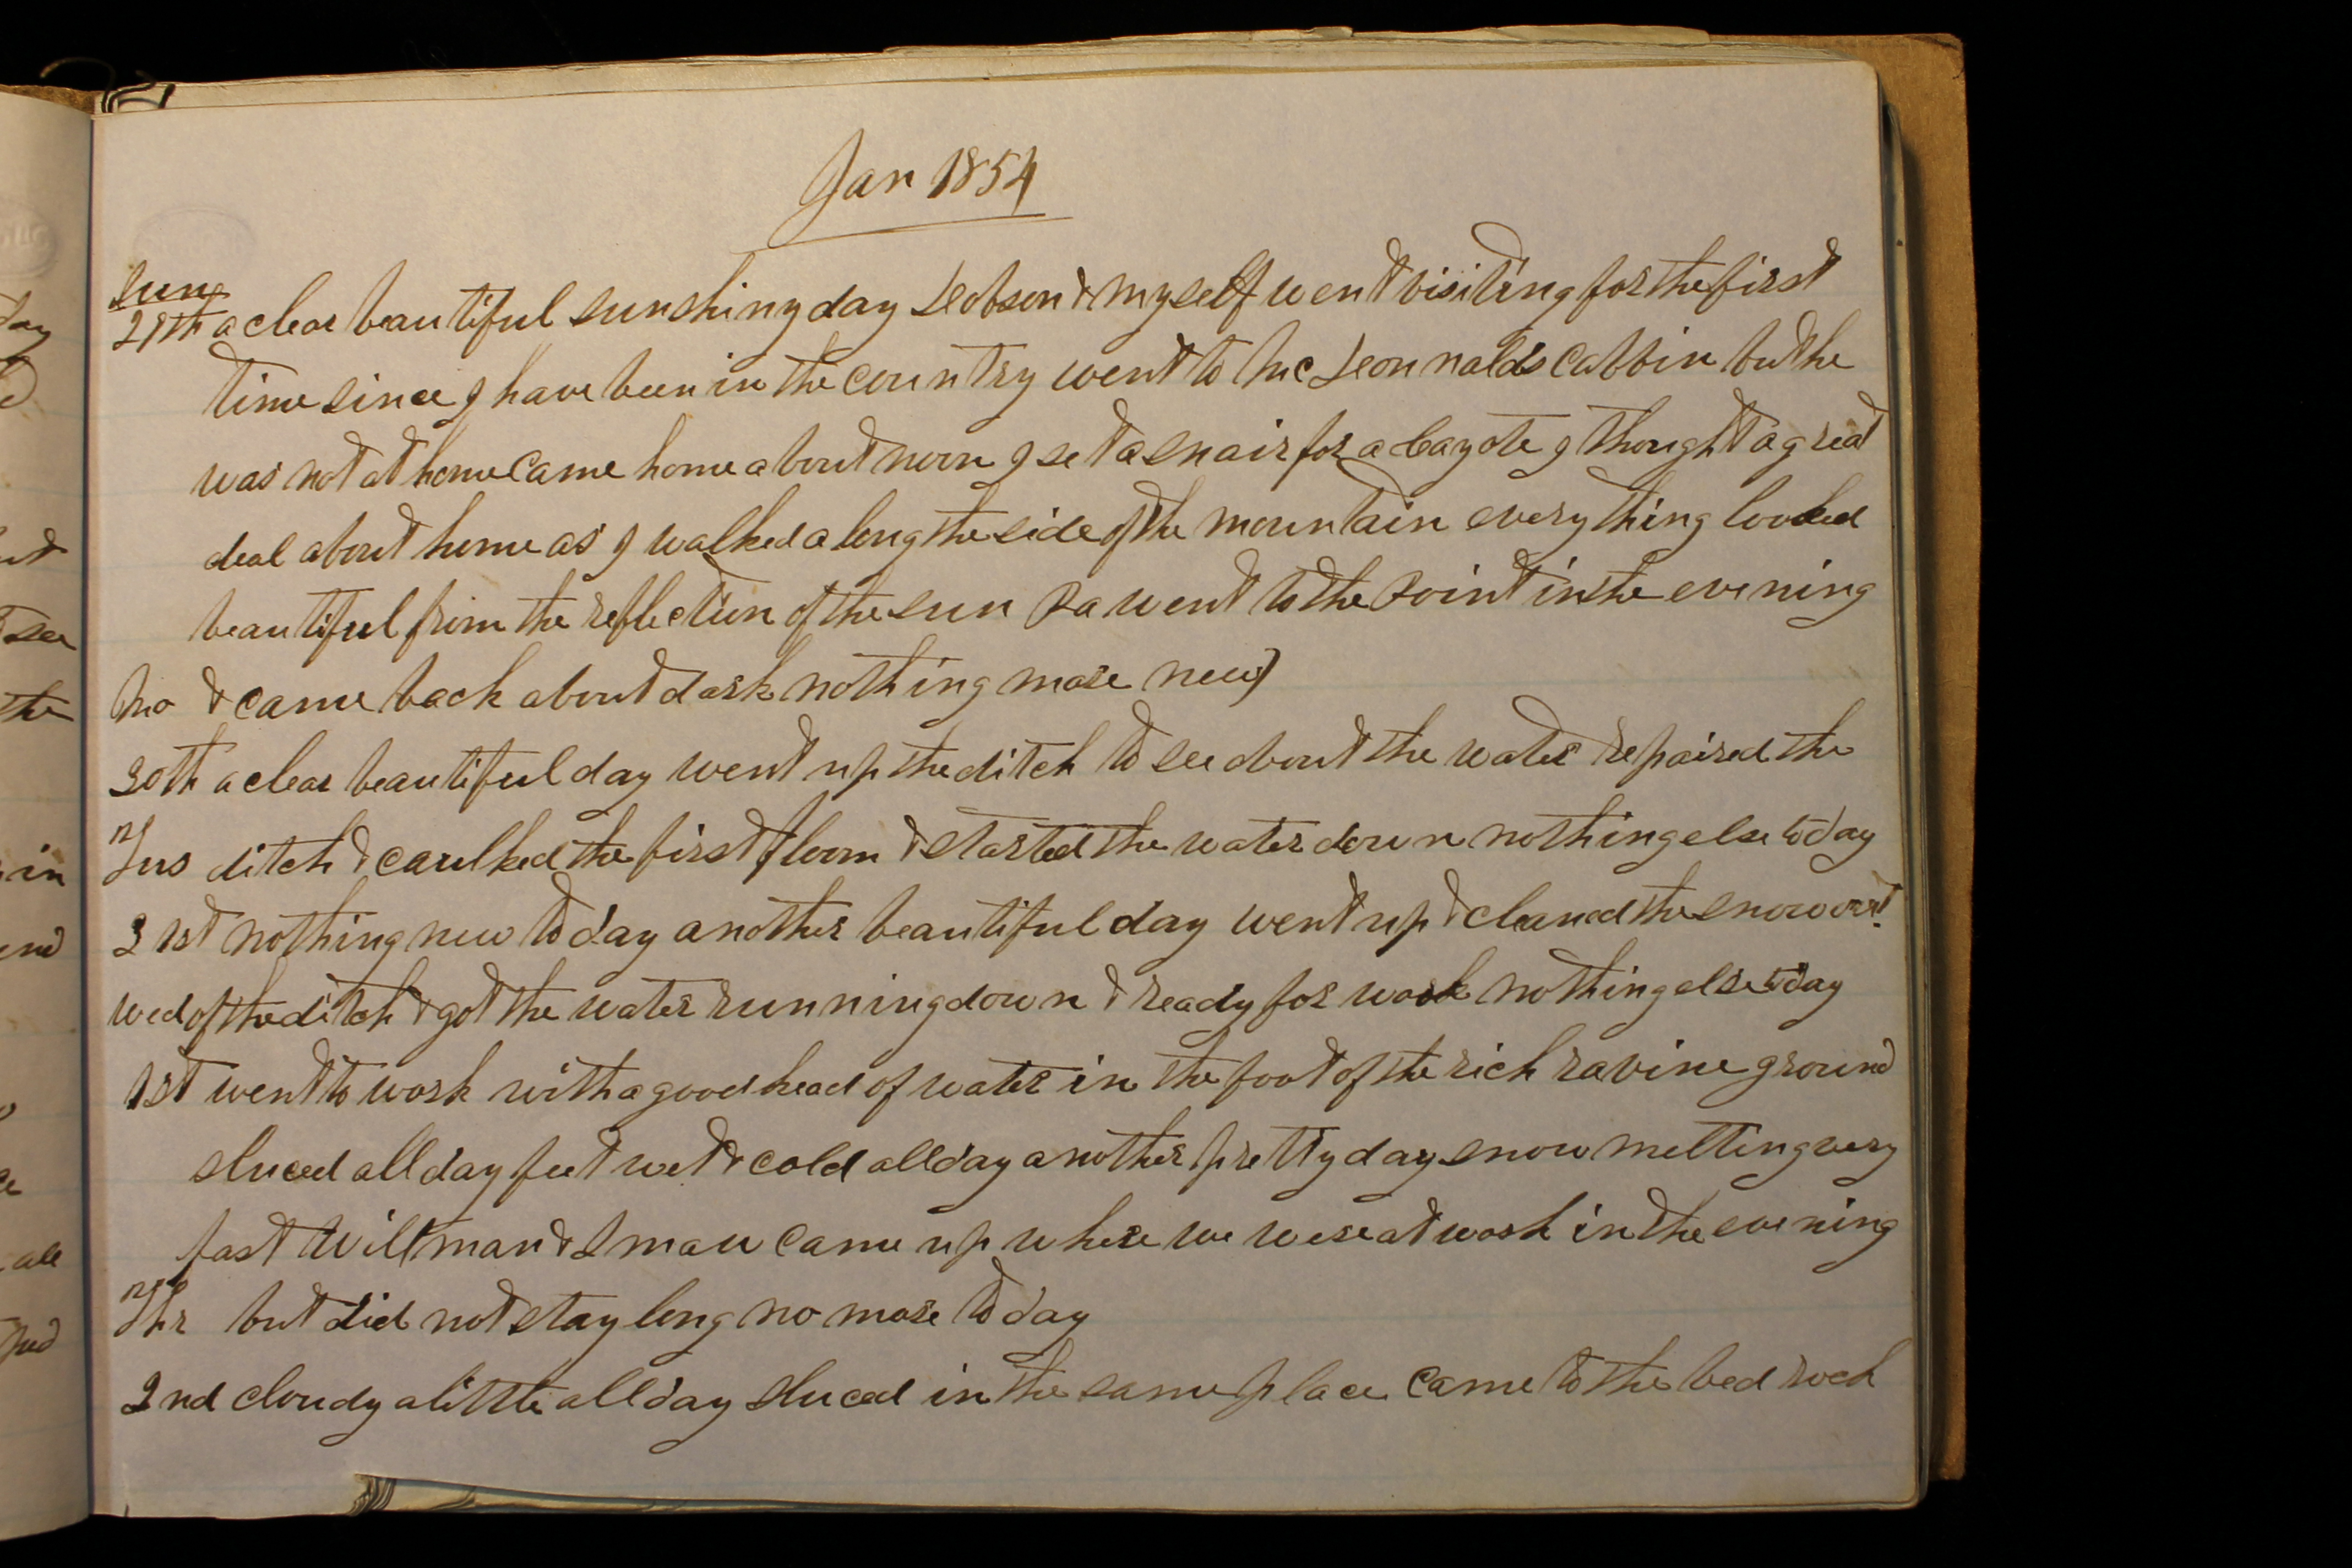 Jan 1854
Sun
29th a clear beautiful sunshiny day Dobson & myself went visiting for the first
time since I have been in the country went to McDonnalds cabbin but he
was not at home came home about noon I set a snair for a Cayote I thought a great
deal about home as I walked along the side of the mountain everything looked
beautiful from the reflection of the sun Pa went to the Point in the evening
Mo & came back about dark nothing more new
30th a clear beautiful day went up the ditch to see about the water repaired the
Tus ditch & caulked the first floom & started the water down nothing else to day
31st nothing new to day another beautiful day went up & cleaned the snow out
Wed of the ditch & got the water running down & ready for work nothing else to day
1st went to work with a good head of water in the foot of the rich ravine ground
sluced all day feet wet & cold all day another pretty day snow melting very
fast Wiltman & Smau came up where we were at work in the evening
Thr but did not stay long no more to day
2nd cloudy a little all day sluced in the same place came to the bed rock